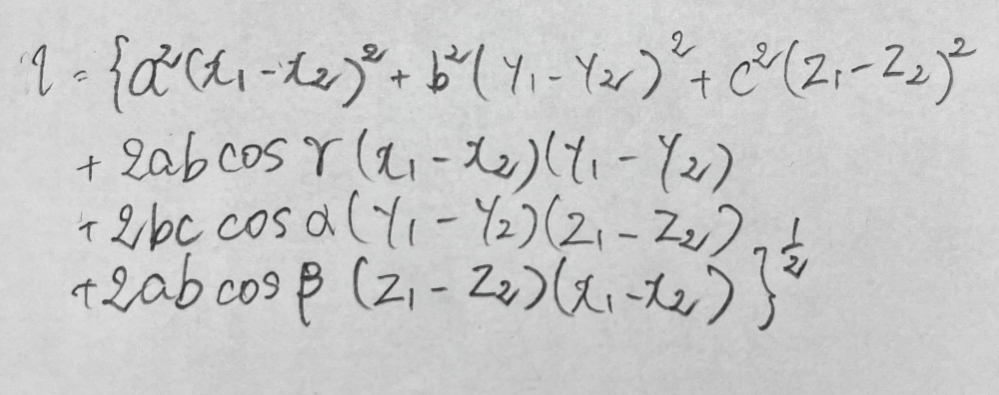 l = {a²(x₁-x₂)² + b²(y₁-y₂)² + c²(z₁-z₂)²
+ 2ab cos γ (x₁-x₂)(y₁-y₂)
+ 2bc cos α (y₁-y₂)(z₁-z₂)
+ 2ab cos β (z₁-z₂)(x₁-x₂)}^½